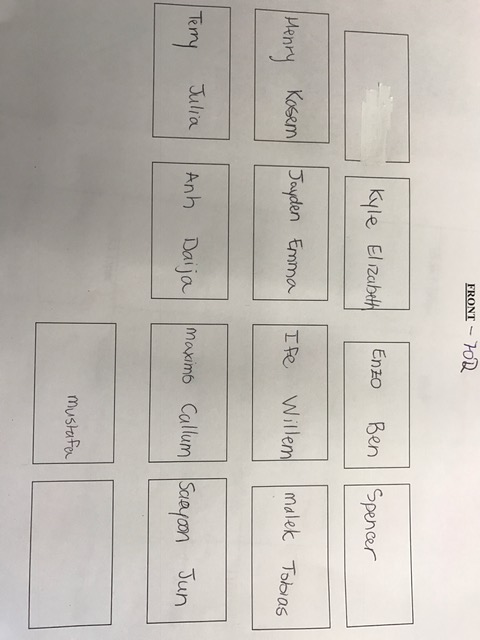 FRONT - 702
Kyle Elizabeth
Enzo Ben
Spencer
Henry Kosem
Jayden Emma
Ife Willem
Malek Tobias
Terry Julia
Anh Daija
Maximo Callum
Saeyoon Jun
Mustafa